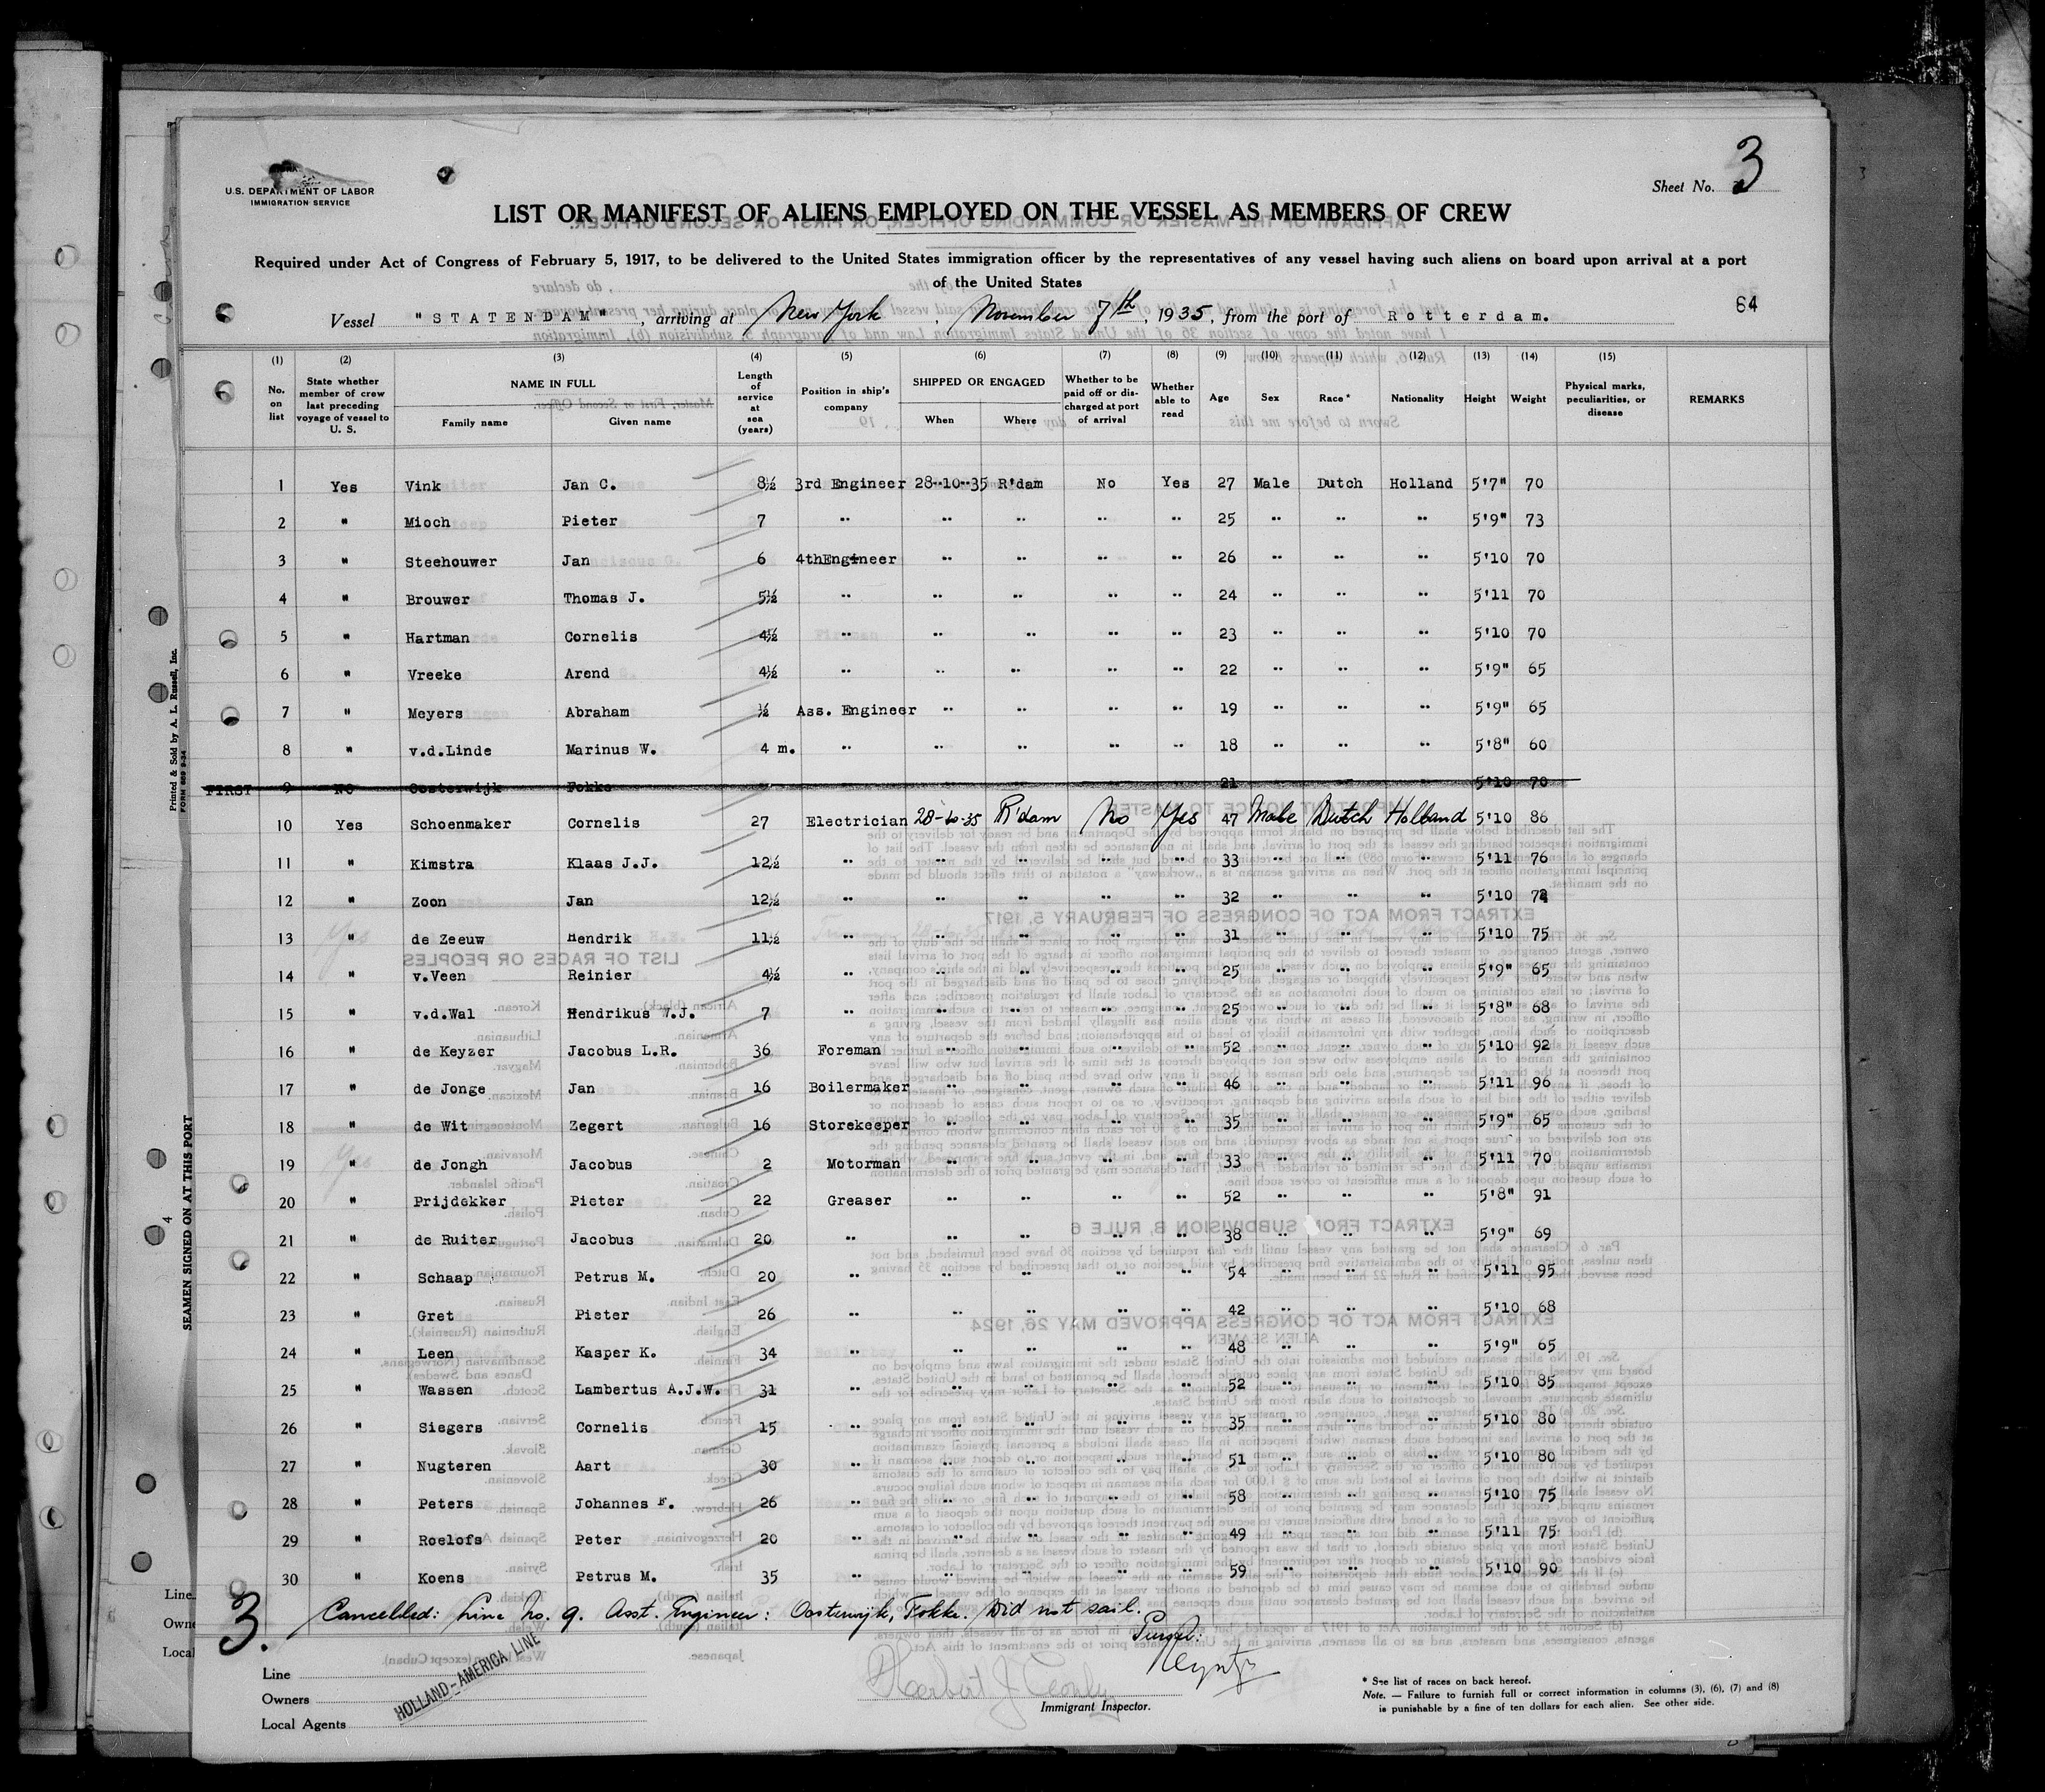 Sheet No. 3
U.S. DEPARTMENT OF LABOR
IMMIGRATION SERVICE
LIST OR MANIFEST OF ALIENS EMPLOYED ON THE VESSEL AS MEMBERS OF CREW
Required under Act of Congress of February 5, 1917, to be delivered to the United States immigration officer by the representatives of any vessel having such aliens on board upon arrival at a port
of the United States
64
Vessel "STATENDAM", arriving at New York, November 7th, 1935, from the port of Rotterdam.
(1) (2) (3) (4) (5) (6) (7) (8) (9) (10) (11) (12) (13) (14) (15)
No. on list State whether member of crew last preceding voyage of vessel to U. S. NAME IN FULL Family name Given name Length of service at sea (years) Position in ship's company SHIPPED OR ENGAGED When Where Whether to be paid off or discharged at port of arrival Whether able to read Age Sex Race* Nationality Height Weight Physical marks, peculiarities, or disease REMARKS
1 Yes Vink Jan C. 8½ 3rd Engineer 28-10-35 R'dam No Yes 27 Male Dutch Holland 5'7" 70
2 " Mioch Pieter 7 " " " " " 25 " " " 5'9" 73
3 " Steehouwer Jan 6 4thEngineer " " " " 26 " " " 5'10 70
4 " Brouwer Thomas J. 5½ " " " " " 24 " " " 5'11 70
5 " Hartman Cornelis 4½ " " " " " 23 " " " 5'10 70
6 " Vreeke Arend 4½ " " " " " 22 " " " 5'9" 65
7 " Meyers Abraham ½ Ass. Engineer " " " " 19 " " " 5'9" 65
8 " v.d.Linde Marinus W. 4 m. " " " " " 18 " " " 5'8" 60
FIRST 9 NO Oosterwijk Fokke 21 " " " 5'10 70
10 Yes Schoenmaker Cornelis 27 Electrician 28-10-35 R'dam No Yes 47 Male Dutch Holland 5'10 86
11 " Kimstra Klaas J.J. 12½ " " " " " 33 " " " 5'11 76
12 " Zoon Jan 12½ " " " " " 32 " " " 5'10 74
13 " de Zeeuw Hendrik 11½ " " " " " 31 " " " 5'10 75
14 " v.Veen Reinier 4½ " " " " " 25 " " " 5'9" 65
15 " v.d.Wal Hendrikus W.J. 7 " " " " " 25 " " " 5'8" 68
16 " de Keyzer Jacobus L.R. 36 Foreman " " " " 52 " " " 5'10 92
17 " de Jonge Jan 16 Boilermaker " " " " 46 " " " 5'11 96
18 " de Wit Zegert 16 Storekeeper " " " " 35 " " " 5'9" 65
19 " de Jongh Jacobus 2 Motorman " " " " 33 " " " 5'11 70
20 " Prijdekker Pieter 22 Greaser " " " " 52 " " " 5'8" 91
21 " de Ruiter Jacobus 20 " " " " " 38 " " " 5'9" 69
22 " Schaap Petrus M. 20 " " " " " 54 " " " 5'11 95
23 " Gret Pieter 26 " " " " " 42 " " " 5'10 68
24 " Leen Kasper K. 34 " " " " " 48 " " " 5'9" 65
25 " Wassen Lambertus A.J.W. 31 " " " " " 52 " " " 5'10 85
26 " Siegers Cornelis 15 " " " " " 35 " " " 5'10 80
27 " Nugteren Aart 30 " " " " " 51 " " " 5'10 80
28 " Peters Johannes F. 26 " " " " " 58 " " " 5'10 75
29 " Roelofs Peter 20 " " " " " 49 " " " 5'11 75
30 " Koens Petrus M. 35 " " " " " 59 " " " 5'10 90
3. Cancelled: Line no. 9. Asst. Engineer: Oosterwijk, Fokke. Did not sail.
Purser:
Line
Owners
Local Agents
HOLLAND-AMERICA LINE
Immigrant Inspector.
* See list of races on back hereof.
Note. — Failure to furnish full or correct information in columns (3), (6), (7) and (8)
is punishable by a fine of ten dollars for each alien. See other side.
Printed & Sold by A. L. Russell, Inc.
FORM 689 9-34
SEAMEN SIGNED ON AT THIS PORT
4
Line
Owne
Local